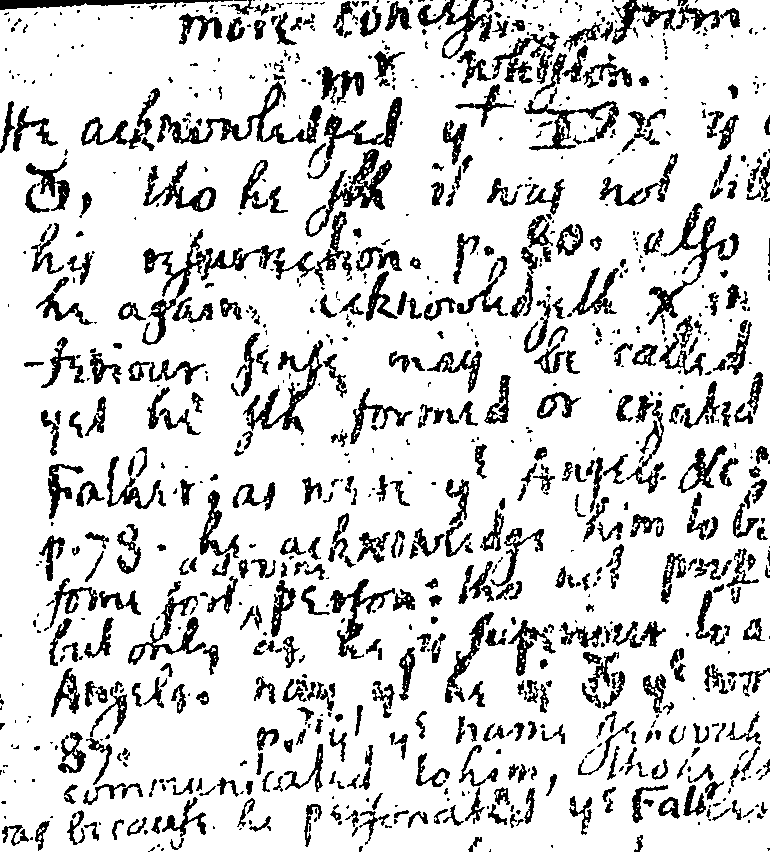 more concess. from
mr whiston.
He acknowledged yt X is
, tho he sth it was not till
his resurrection. p. 80. also
he again acknowledgeth X in
-feriour sense may be called
yet he sth formed or created
Father; as were ye Angels &c:
p. 78. he acknowledge him to be
a divine
some sort ^ person: tho not prop
but only as he is superiour to a
Angels. nay yt he is ye wor
87. p. yt ye name Jehovah
communicated to him, tho he s
was because he personated ye Father